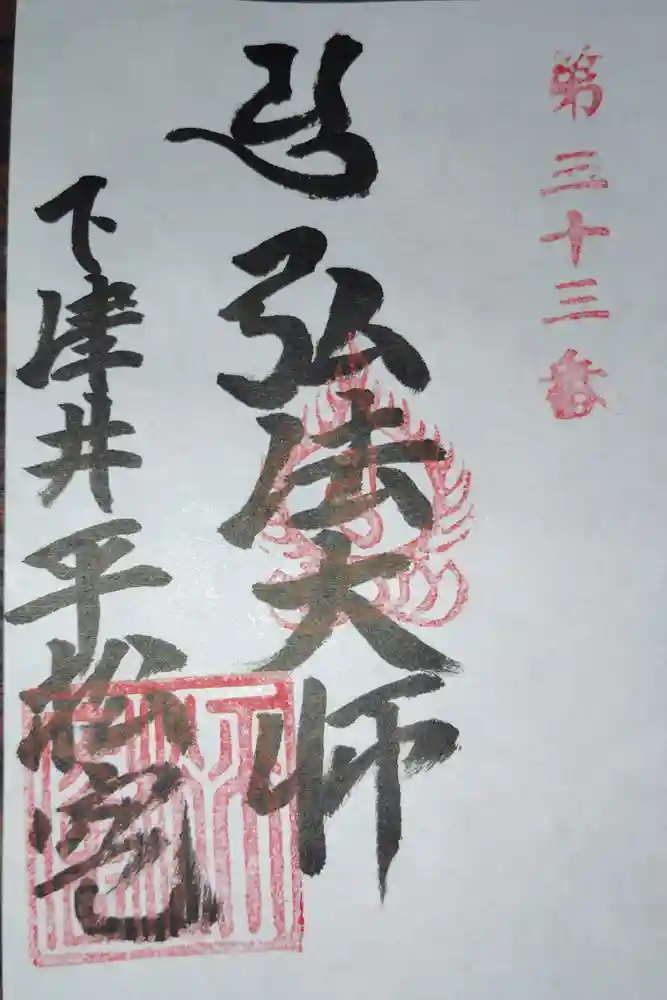 第三十三番
弘法大師
下津井平松宅